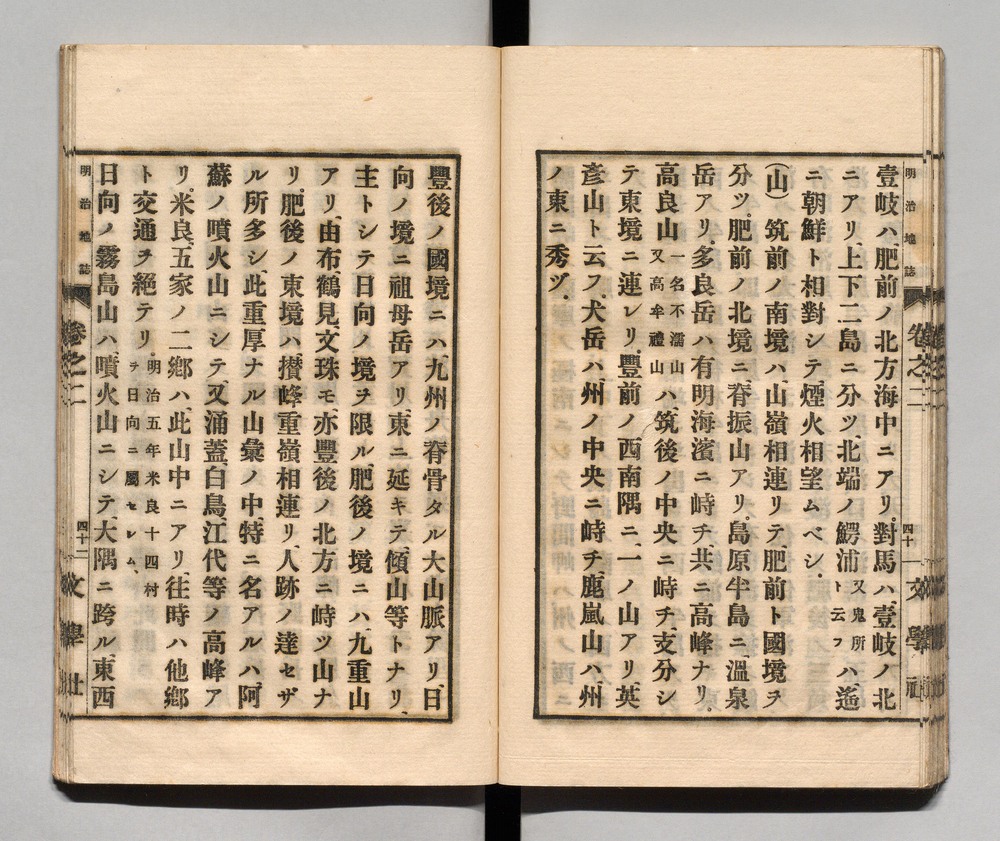 明治地誌 卷之二 四十 文學社
壹岐ハ、肥前ノ北方海中ニアリ。對馬ハ、壹岐ノ北
ニアリ、上下二島ニ分ツ、北端ノ鰐浦又鬼所ト云フハ、遙
ニ朝鮮ト相對シテ、煙火相望ムベシ。
(山) 筑前ノ南境ハ、山嶺相連リテ、肥前ト國境ヲ
分ツ。肥前ノ北境ニ、脊振山アリ。島原半島ニ、溫泉
岳アリ。多良岳ハ、有明海濱ニ峙チ、共ニ高峰ナリ。
高良山一名不濡山又高牟禮山ハ、筑後ノ中央ニ峙チ、支分シ
テ東境ニ連レリ。豐前ノ西南隅ニ、一ノ山アリ、英
彥山ト云フ、犬岳ハ、州ノ中央ニ峙チ、鹿嵐山ハ、州
ノ東ニ秀ヅ。
豐後ノ國境ニハ、九州ノ脊骨タル大山脈アリ、日
向ノ境ニ祖母岳アリ、東ニ延キテ、傾山等トナリ、
主トシテ日向ノ境ヲ限ル、肥後ノ境ニハ、九重山
アリ、由布、鶴見、文珠モ、亦豐後ノ北方ニ峙ツ山ナ
リ。肥後ノ東境ハ、攅峰重嶺相連リ、人跡ノ達セザ
ル所多シ、此重厚ナル山彙ノ中、特ニ名アルハ、阿
蘇ノ噴火山ニシテ、又涌蓋、白鳥、江代等ノ高峰ア
リ。米良、五家ノ二鄉ハ、此山中ニアリ、往時ハ他鄉
ト交通ヲ絕テリ。明治五年米良十四村ヲ日向ニ屬セレム、
日向ノ霧島山ハ、噴火山ニシテ、大隅ニ跨ル、東西
明治地誌 卷之二 四十二 文學社